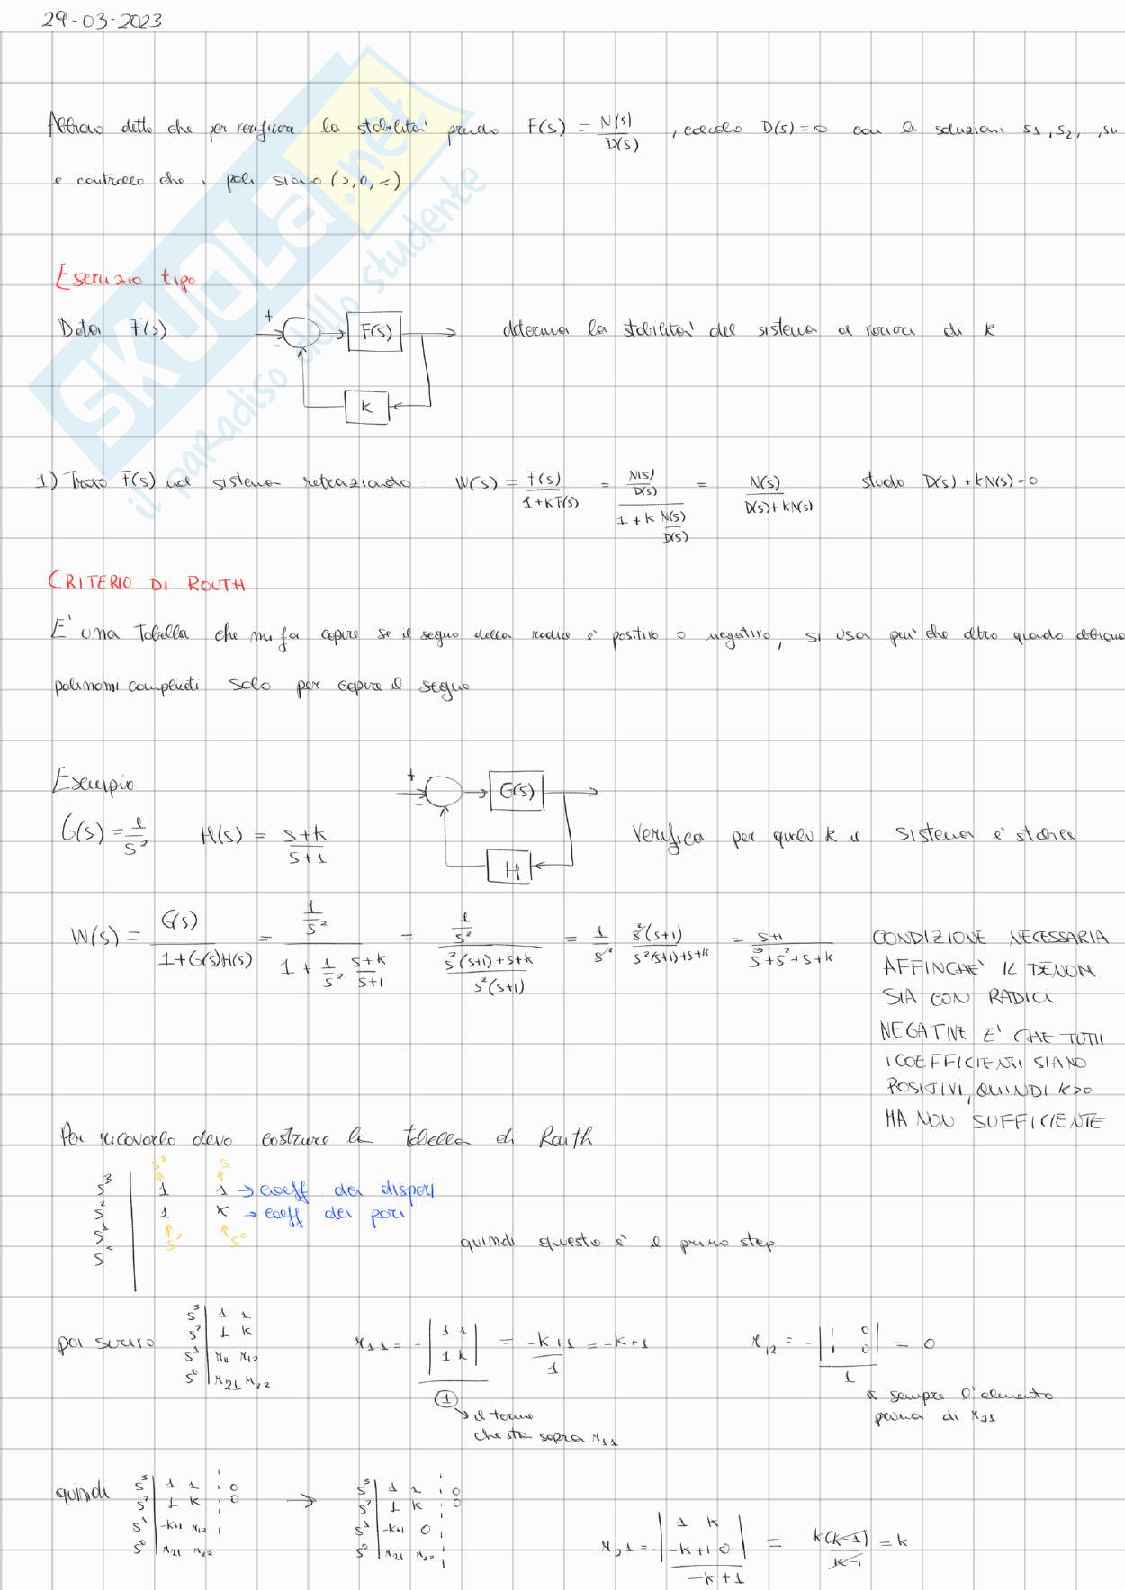 29-03-2023
Abbiamo detto che per verificare la stabilità prendo F(s) = N(s)/D(s) , calcolo D(s)=0 con le soluzioni s1, s2, sn
e controllo che i poli siano (>,0,<)
Esercizio tipo
Data F(s) + F(s) determina la stabilità del sistema al variare di k
K
1) Trovo F(s) nel sistema retroazionato W(s) = F(s)/(1+KF(s)) = (N(s)/D(s))/(1+K N(s)/D(s)) = N(s)/(D(s)+KN(s)) studio D(s)+KN(s)=0
CRITERIO DI ROUTH
E' una Tabella che mi fa capire se il segno della radice è positivo o negativo, si usa più che altro quando abbiamo
polinomi complicati solo per capire il segno
Esempio + G(s)
G(s)=1/s² H(s) = (s+k)/(s+1) H Verifica per quali k il sistema è stabile
W(s) = G(s)/(1+G(s)H(s)) = (1/s²)/(1+1/s² · (s+k)/(s+1)) = (1/s²)/((s²(s+1)+s+k)/(s²(s+1))) = 1/s² · s²(s+1)/(s²(s+1)+s+k) = (s+1)/(s³+s²+s+k)
CONDIZIONE NECESSARIA
AFFINCHE' IL DENOM
SIA CON RADICI
NEGATIVE E' CHE TUTTI
I COEFFICIENTI SIANO
POSITIVI, QUINDI K>0
MA NON SUFFICIENTE
Per ricavarlo devo costruire la tabella di Routh
s³ | 1 1 → coeff dei dispari
s² | 1 k → coeff dei pari
s¹ |
s⁰ |
quindi questo è il primo step
poi scrivo
s³ | 1 1
s² | 1 k
s¹ | r11 r12
s⁰ | r21 r22
r11 = -|1 1; 1 k|/1 = (-k+1)/1 = -k+1
r12 = -|1 0; 1 0|/1 = 0
il termine
che sta sopra r11
sempre l'elemento
prima di r11
quindi
s³ | 1 1 0
s² | 1 k 0
s¹ | -k+1 r12
s⁰ | r21 r22
→
s³ | 1 1 0
s² | 1 k 0
s¹ | -k+1 0
s⁰ | r21 r22
r21 = -|1 k; -k+1 0|/(-k+1) = k(k-1)/(k-1) = k
SKUOLA.net
il paradiso dello studente